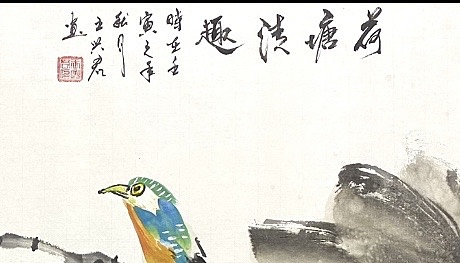 荷塘清趣
時在壬
寅之年
秋月
王兴君
画